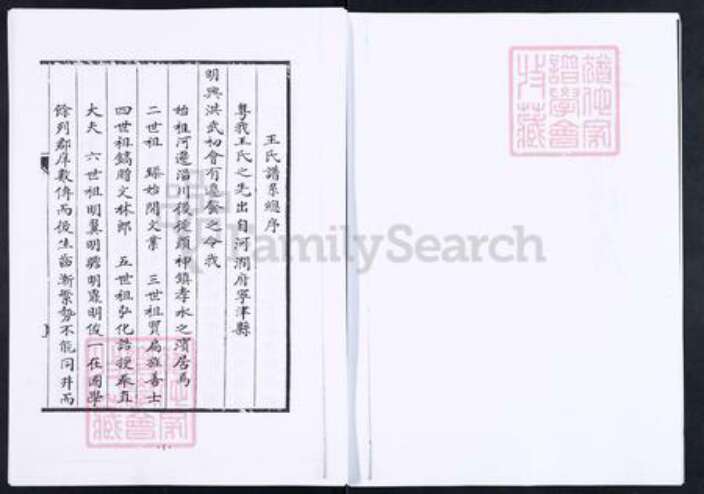 王氏譜系總序
粵我王氏之先出自河澗府寧津縣
明興洪武初會有遷發之令我
始祖河遷淄川後從顏神鎮孝水之濱居焉
二世祖 臻始閒文業 三世祖貿扁旌善士
四世祖鎬贈文林郎 五世祖弘化誥授奉直
大夫 六世祖明翼明明靄明俊一在國學
餘列郡庠數傳而後生齒漸繁勢不能同井而
FamilySearch
譜學會